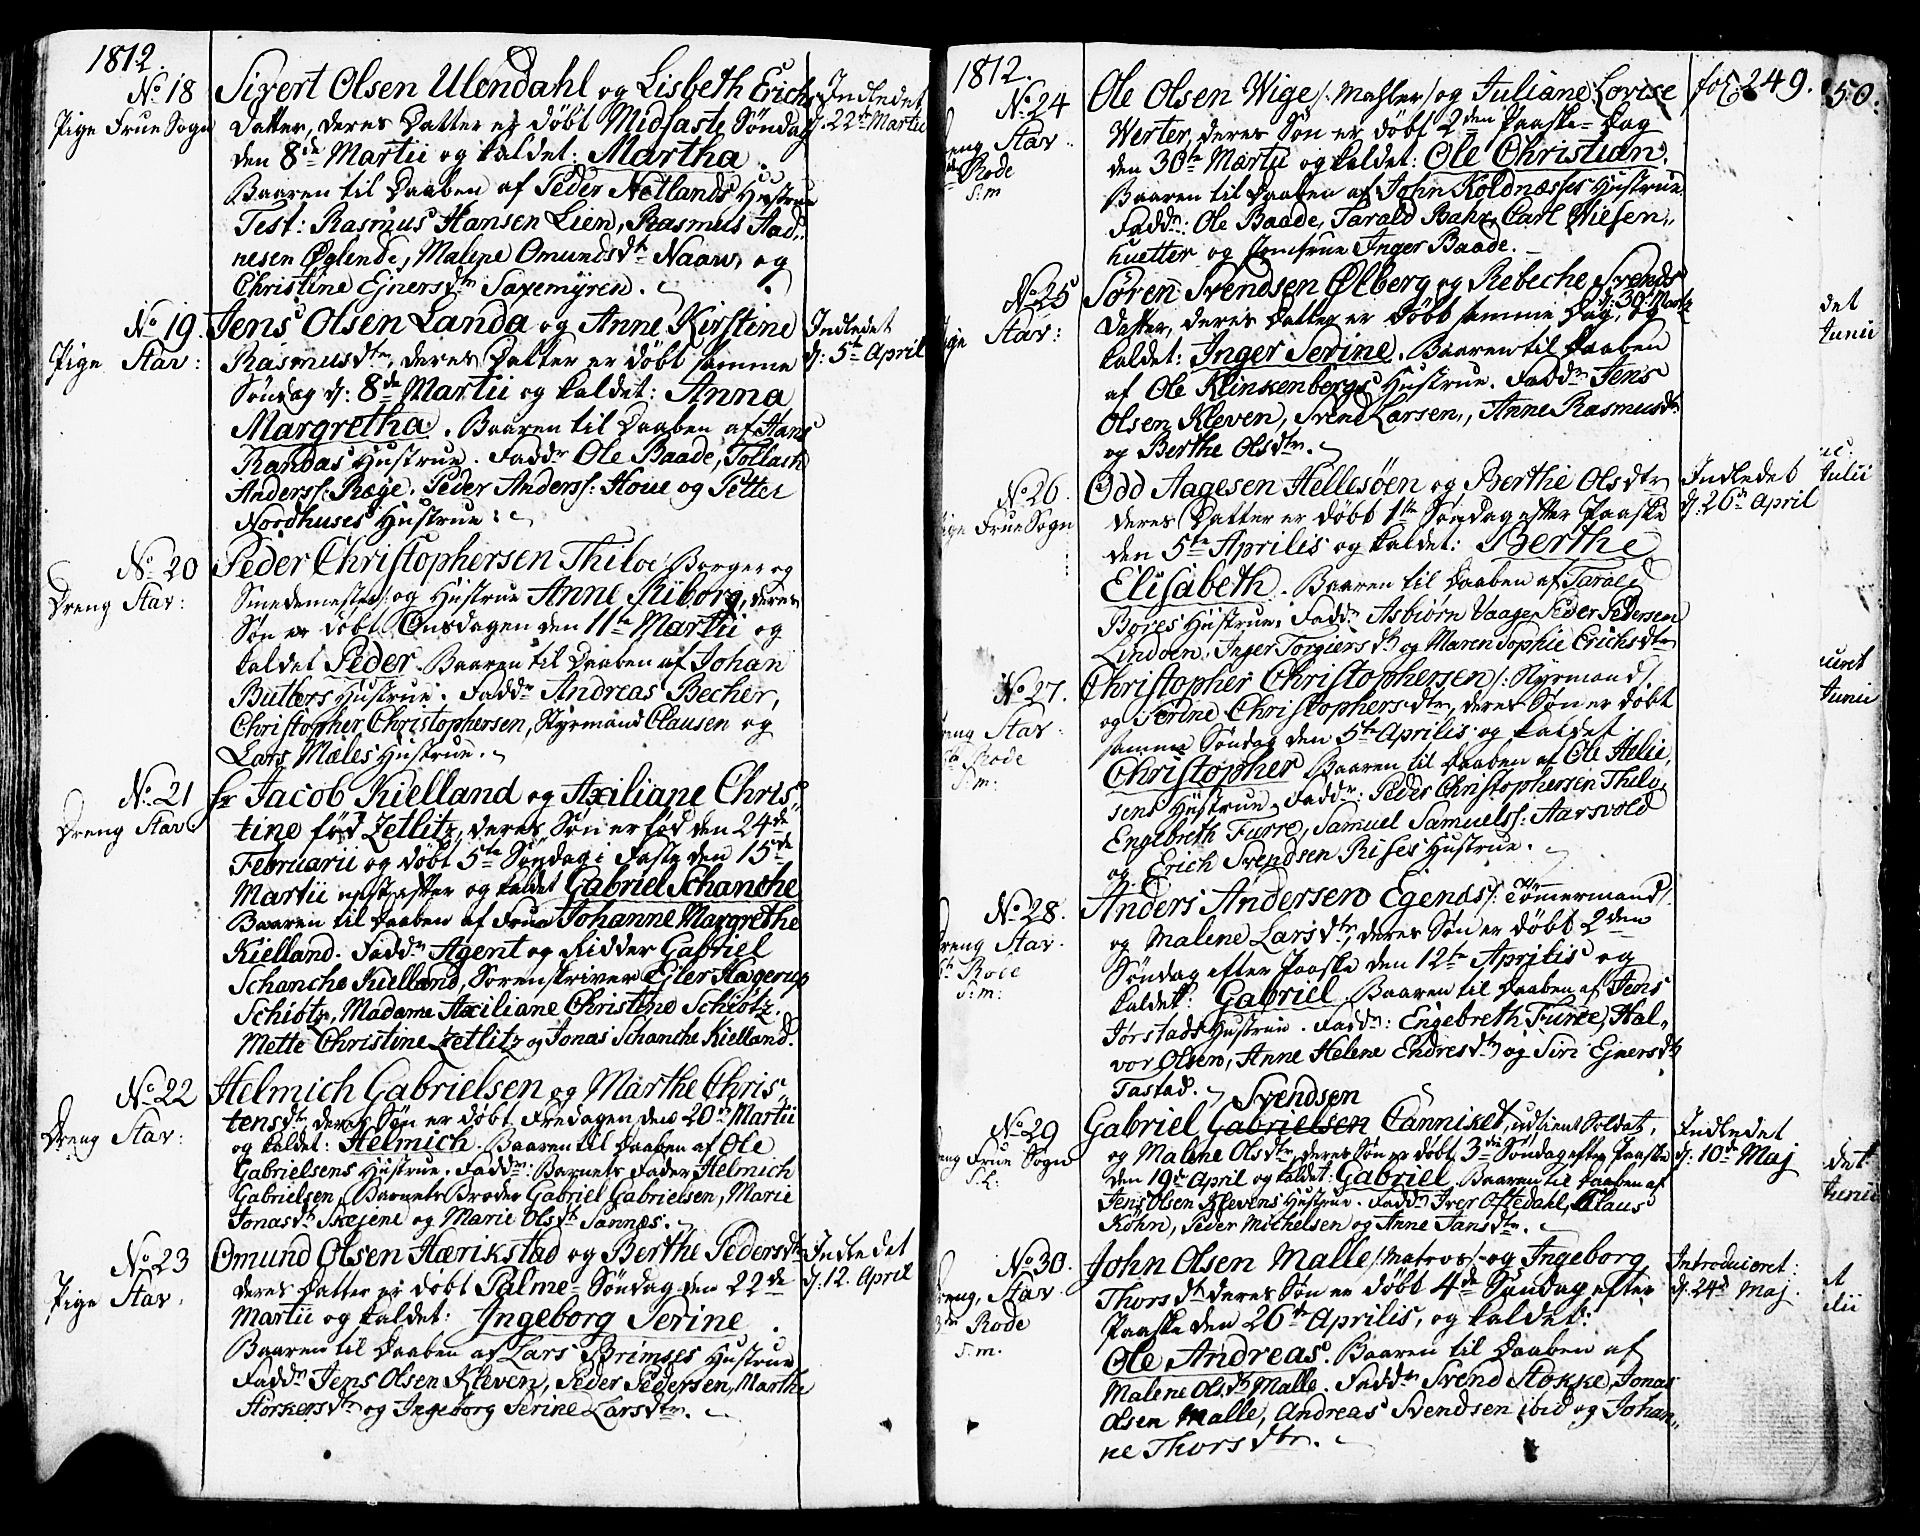 1812.
No 18
Pige Frue Sogn
Sivert Olsen Ulendahl og Lisbeth Erichs
Datter, deres Datter er døbt Midfaste Søndag
den 8de Martii og kaldet: Martha.
Baaren til Daaben af Peder Netlands Hustrue
Test: Rasmus Hansen Lien, Rasmus Aad„
nesen Øglende, Malene Omundsdtr Naaw, og
Christine Ejnersdtr Saxemyren.
Indledet
d. 22de Martii
No 19.
Pige Stav:
Jens Olsen Landa og Anne Kirstine
Rasmusdtr, deres Datter er døbt samme
Søndag d: 8de Martii og kaldet: Anna
Margretha. Baaren til Daaben af Hans
Randas Hustrue. Faddr Ole Baade, Tollach
Anderss: Ræge. Peder Anderss: Houe og Petter
Nordhuses Hustrue:
Indledet
d: 5te April
No 20
Dreng Stav:
Peder Christophersen Thiloe Borger og
Smedemester: og Hustrue Anne Kiborg, deres
Søn er døbt Onsdagen den 11te Martii og
kaldet Peder. Baaren til Daaben af Johan
Butlers Hustrue. Faddr Andreas Becher,
Christopher Christophersen, Styrmand Clausen og
Lars Mæles Hustrue.
No 21
Dreng Stav.
Hr Jacob Kielland og Axiliane Chris„
tine fød Zetlitz, deres Søn er fød den 24de
Februarii og døbt 5te Søndag i Faste den 15de
Martii næst efter og kaldet Gabriel Schanche
Baaren til Daaben af Frue Johanne Margrethe
Kielland. Faddr Agent og Ridder Gabriel
Schanche Kielland, Sorenskriver Ejler Hagerup
Schiøtz, Madame Axiliane Christine Schiøtz.
Mette Christine Zetlitz og Jonas Schanche Kielland.
No 22
Dreng Stav:
Helmich Gabrielsen og Marthe Chris„
tensdtr deres Søn er døbt Fredagen den 20de Martii
og kaldet: Helmich. Baaren til Daaben af Ole
Gabrielsens Hustrue. Faddr: Barnets Fader Helmich
Gabrielsen, Barnets Broder Gabriel Gabrielsen, Marie
Jonasdtr Skejene og Marie Olsdtr Sannæs.
No 23
Pige Stav.
Omund Olsen Hærikstad og Berthe Pedersdtr
deres Datter er døbt Palme-Søndag den 22de
Martii og kaldet: Ingeborg Serine.
Baaren til Daaben af Lars Brimses Hustrue
Faddr Jens Olsen Kleven, Peder Pedersen, Marthe
Storkersdtr og Ingeborg Serine Larsdtr.
Indledet
d: 12. April
1812.
fol: 249.
No 24
Stav.
Rode
S:m
Ole Olsen Wige /: Mahler /: og Juliane Lovise
Werter, deres Søn er døbt 2den Paaske-Dag
den 30te Martii og kaldet: Ole Christian.
Baaren til Daaben af John Koldnæsses Hustrue
Faddr: Ole Baade, Tarald Bahr, Carl Wiesen„
huetter og Jomfrue Inger Baade.
No 25
Stav:
Søren Svendsen Ølberg og Rebeche Svends
d: 30te Martz
Datter, deres Datter er døbt samme Dag, og
kaldet: Inger Serine. Baaren til Daaben
af Ole Klinkenbergs Hustrue. Faddr Jens
Olsen Kleven, Svend Larsen, Anne Rasmusdtr
og Berthe Olsdtr.
No 26.
Pige Frue Sogn
Odd Aagesen Hellesøen og Berthe Olsdtr
deres Datter er døbt 1ste Søndag efter Paaske
den 5te Aprilis og kaldet: Berthe
Elisabeth. Baaren til Daaben af Tarald
Bores Hustrue: Faddr Asbiørn Vaage, Peder Pedersen
Lindøen. Inger Torgiersdtr og Maren Sophie Erichsdtr
Indledet
d: 26de April
No 27.
Dreng Stav.
Rode
S.m:
Christopher Christophersen /: Styrmand /.
og Serine Christophersdtr, deres Søn er døbt
samme Søndag den 5te Aprilis og kaldet
Christopher Baaren til Daaben af Ole Helie„
sens Hustrue. Faddr: Peder Christophersen Thilo,
Engebreth Furre, Samuel Samuelss: Aarsvold
og Erich Svendsen Rises Hustrue.
No 28.
Dreng Stav.
Rode
S:m:
Anders Andersen Egenæs /: Tømmermand /.
og Malene Larsdtr, deres Søn er døbt 2den
Søndag efter Paaske den 12te Aprilis og
kaldet: Gabriel. Baaren til Daaben af Jens
Jørstads Hustrue. Faddr: Engebreth Furre, Hal„
vor Olsen, Anne Helene Endresdtr og Siri Ejnersdtr
Tastad.
No 29
Dreng Frue Sogn
Svendsen
Gabriel Gabrielsen Canniket, udtient Soldat,
og Malene Olsdtr, deres Søn er døbt 3die Søndag efter Paaske
den 19de April og kaldet: Gabriel. Baaren til Daaben af
Jens Olsen Klevens Hustrue. Faddr Iver Oftedahl, Claus
Køhn, Peder Michelsen og Anne Jansdtr.
Indledet
d: 10de Maj
No 30.
Dreng, Stav.
Rode
S.m.
John Olsen Malle /: Matros /- og Ingeborg
Thorsdtr deres Søn er døbt 4de Søndag efter
Paaske den 26de Aprilis, og kaldet:
Ole Andreas. Baaren til Daaben af
Malene Olsdtr Malle. Faddr Svend Stokke, Jonas
Olsen Malle, Andreas Svendsen ibid og Johan„
ne Thorsdtr.
Introduceret:
d: 24de Maj.
50.
det
Junii
Julii
Junii
det
Junii